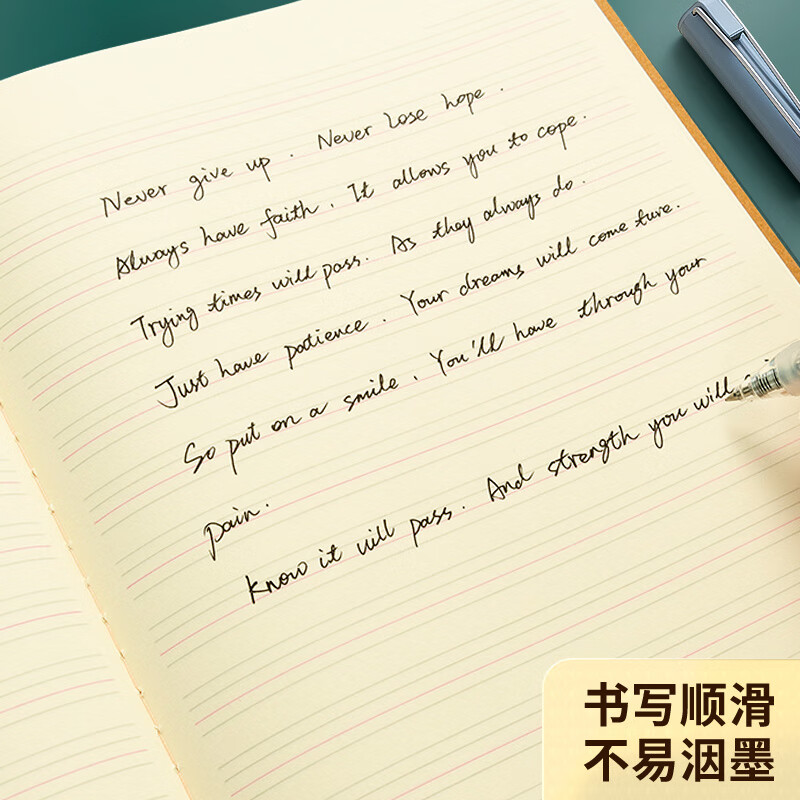 Never give up. Never lose hope.
Always have faith. It allows you to cope.
Trying times will pass. As they always do.
Just have patience. Your dreams will come ture.
So put on a smile. You'll have through your
pain.
Know it will pass. And strength you will
书写顺滑
不易洇墨